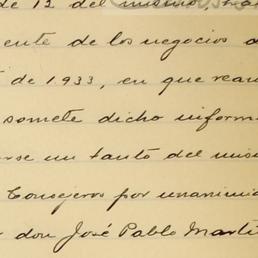 de 12 del mismo,
ente de los negocios
de 1933, en que
somete dicho inform
rse un tanto del mis
Consejeros por unanimi
don José Pablo Marti